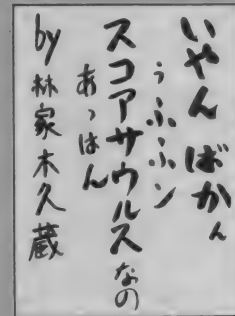 いやん ばかん
うふふン
スコアサウルスなの
あっはん
by 林家木久蔵